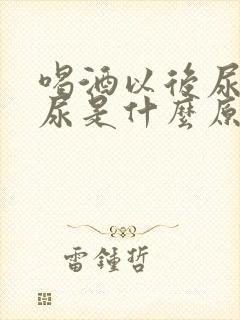 喝酒以後尿
尿是什麼原
雷鍾哲